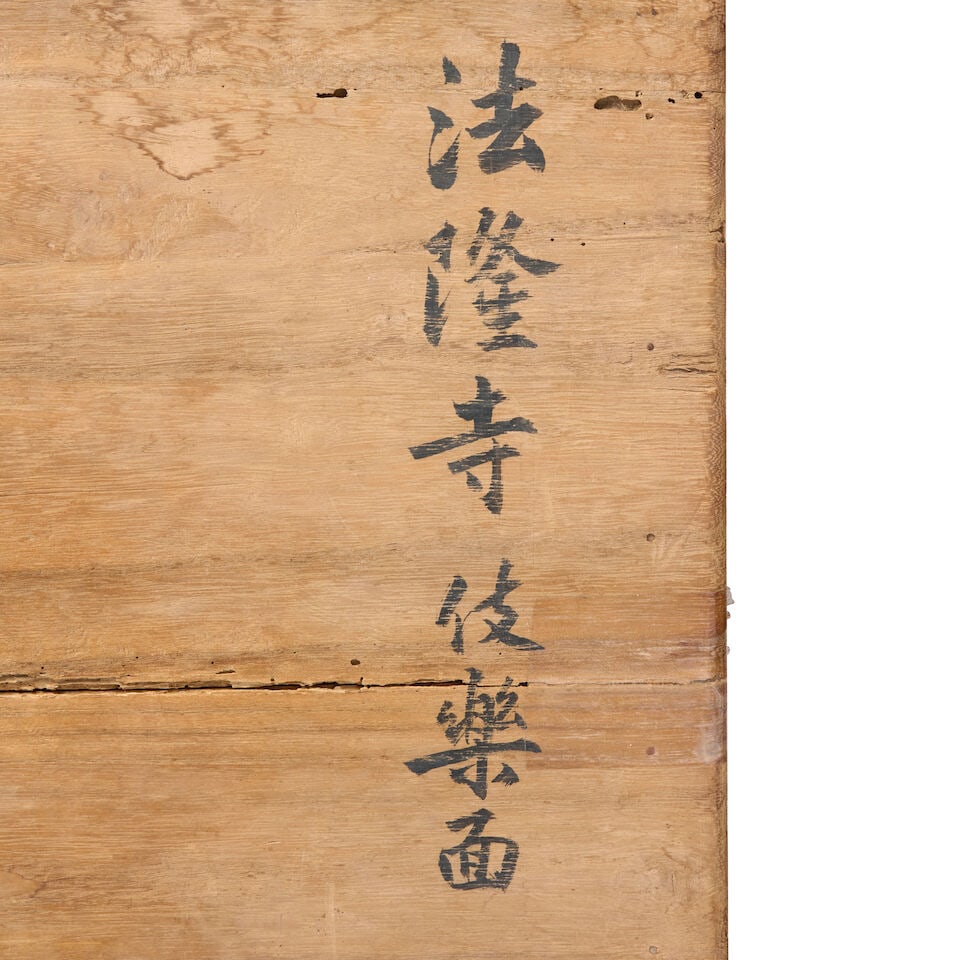 法隆寺伎樂面